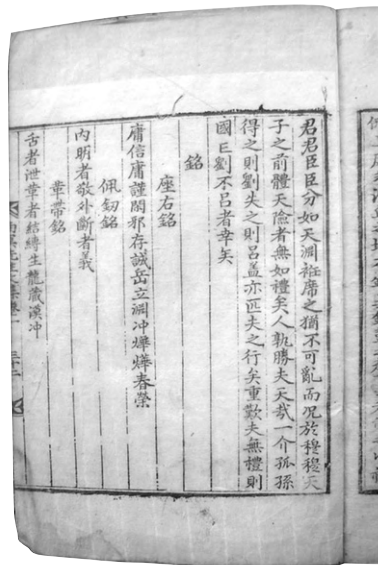 君君臣臣分如天淵衽席之猶不可亂而况於穆穆天
子之前體天險者無如禮矣人孰勝夫天哉一介孤孫
得之則劉失之則呂盖亦匹夫之行矣重歎夫無禮則
國巳劉不呂者幸矣
銘
座右銘
庸信庸謹閑邪存誠岳立淵冲燁燁春榮
佩劒銘
內明者敬外斷者義
革帶銘
舌者泄革者結縛生龍藏漠冲